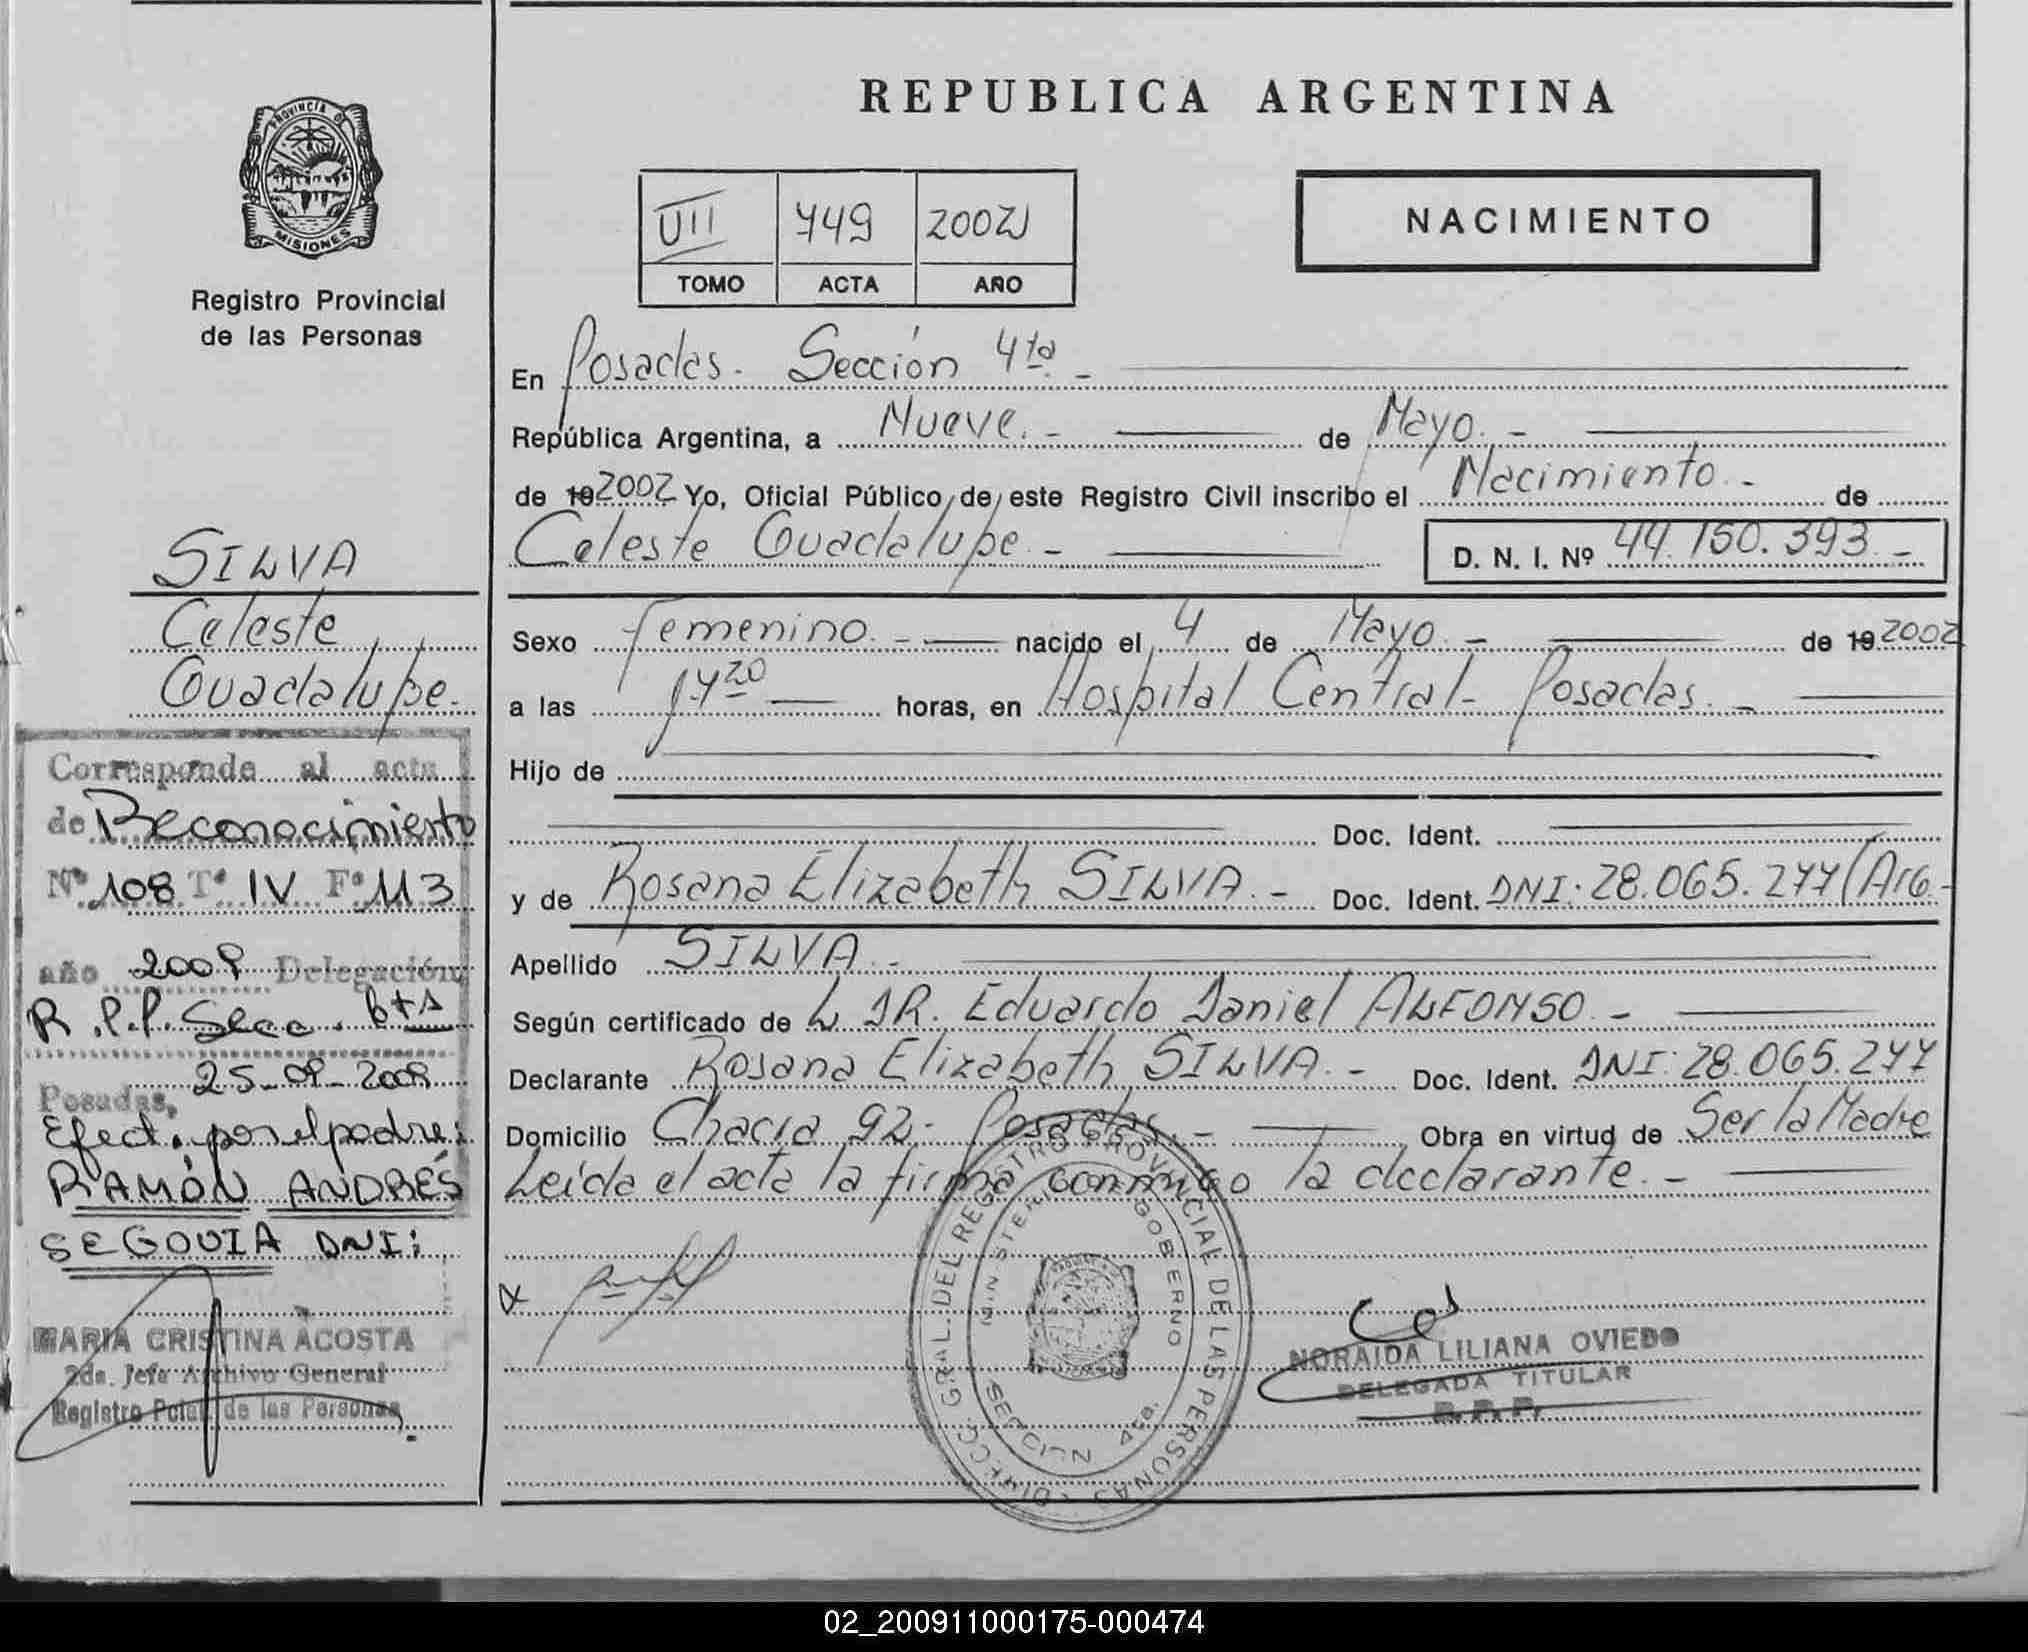 REPUBLICA ARGENTINA
PROVINCIA DE
MISIONES
Registro Provincial
de las Personas
VII 749 2002
TOMO ACTA AÑO
NACIMIENTO
En Posadas. Sección 4ta. -
República Argentina, a Nueve. - de Mayo. -
de 19 2002 Yo, Oficial Público de este Registro Civil inscribo el Nacimiento. - de
Celeste Guadalupe. - D. N. I. Nº 44.150.393. -
Sexo Femenino. - nacido el 4 de Mayo. - de 19 2002
a las 17 20 horas, en Hospital Central - Posadas. -
Hijo de
Doc. Ident.
y de Rosana Elizabeth SILVA. - Doc. Ident. DNI: 28.065.277 (Arg. -
Apellido SILVA. -
Según certificado de L DR. Eduardo Daniel ALFONSO. -
Declarante Rosana Elizabeth SILVA. - Doc. Ident. DNI: 28.065.277
Domicilio Chacra 92 - Posadas. - Obra en virtud de Ser la Madre
Leída el acta la firma conmigo la declarante. -
SILVA
Celeste
Guadalupe.
Corresponde al acta
de Reconocimiento
Nº 108 Tº IV Fº 113
año 2009 Delegación
R.P.P. Secc. 6ta
Posadas, 25-09-2009
Efect. por el padre:
RAMÓN ANDRÉS
SEGOVIA DNI:
MARIA CRISTINA ACOSTA
2da. Jefe Archivo General
Registro Pcial. de las Personas
DIRECC. GRAL. DEL REGISTRO PROVINCIAL DE LAS PERSONAS
MINISTERIO GOBIERNO
SECCION 4ta.
NORAIDA LILIANA OVIEDO
DELEGADA TITULAR
R. P. P.
02_200911000175-000474